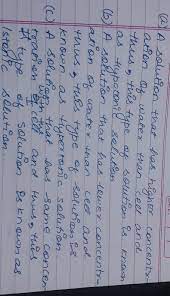 (a) A solution that has higher concentr-
ation of water than cell and
thus, this type of solution is known
as Hypotonic solution
(b) A solution that has lower concentr-
ation of water than cell and
thus, this type of solution is
known as Hypertonic solution
(c) A solution that has same concen-
tration and thus, this
type of solution is known as
Isotonic solution.